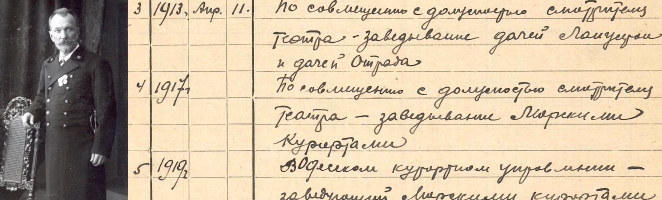 3 1913 г. Апр. 11. По совмещению с должностью смотрителя
театра - заведывание дачей Ланжерон
и дачей Отрада
4 1917 г. По совмещению с должностью смотрителя
театра — заведывание Морскими
Курортами
5 1919 г. В Одесском курортном управлении —
заведующий Морскими курортами